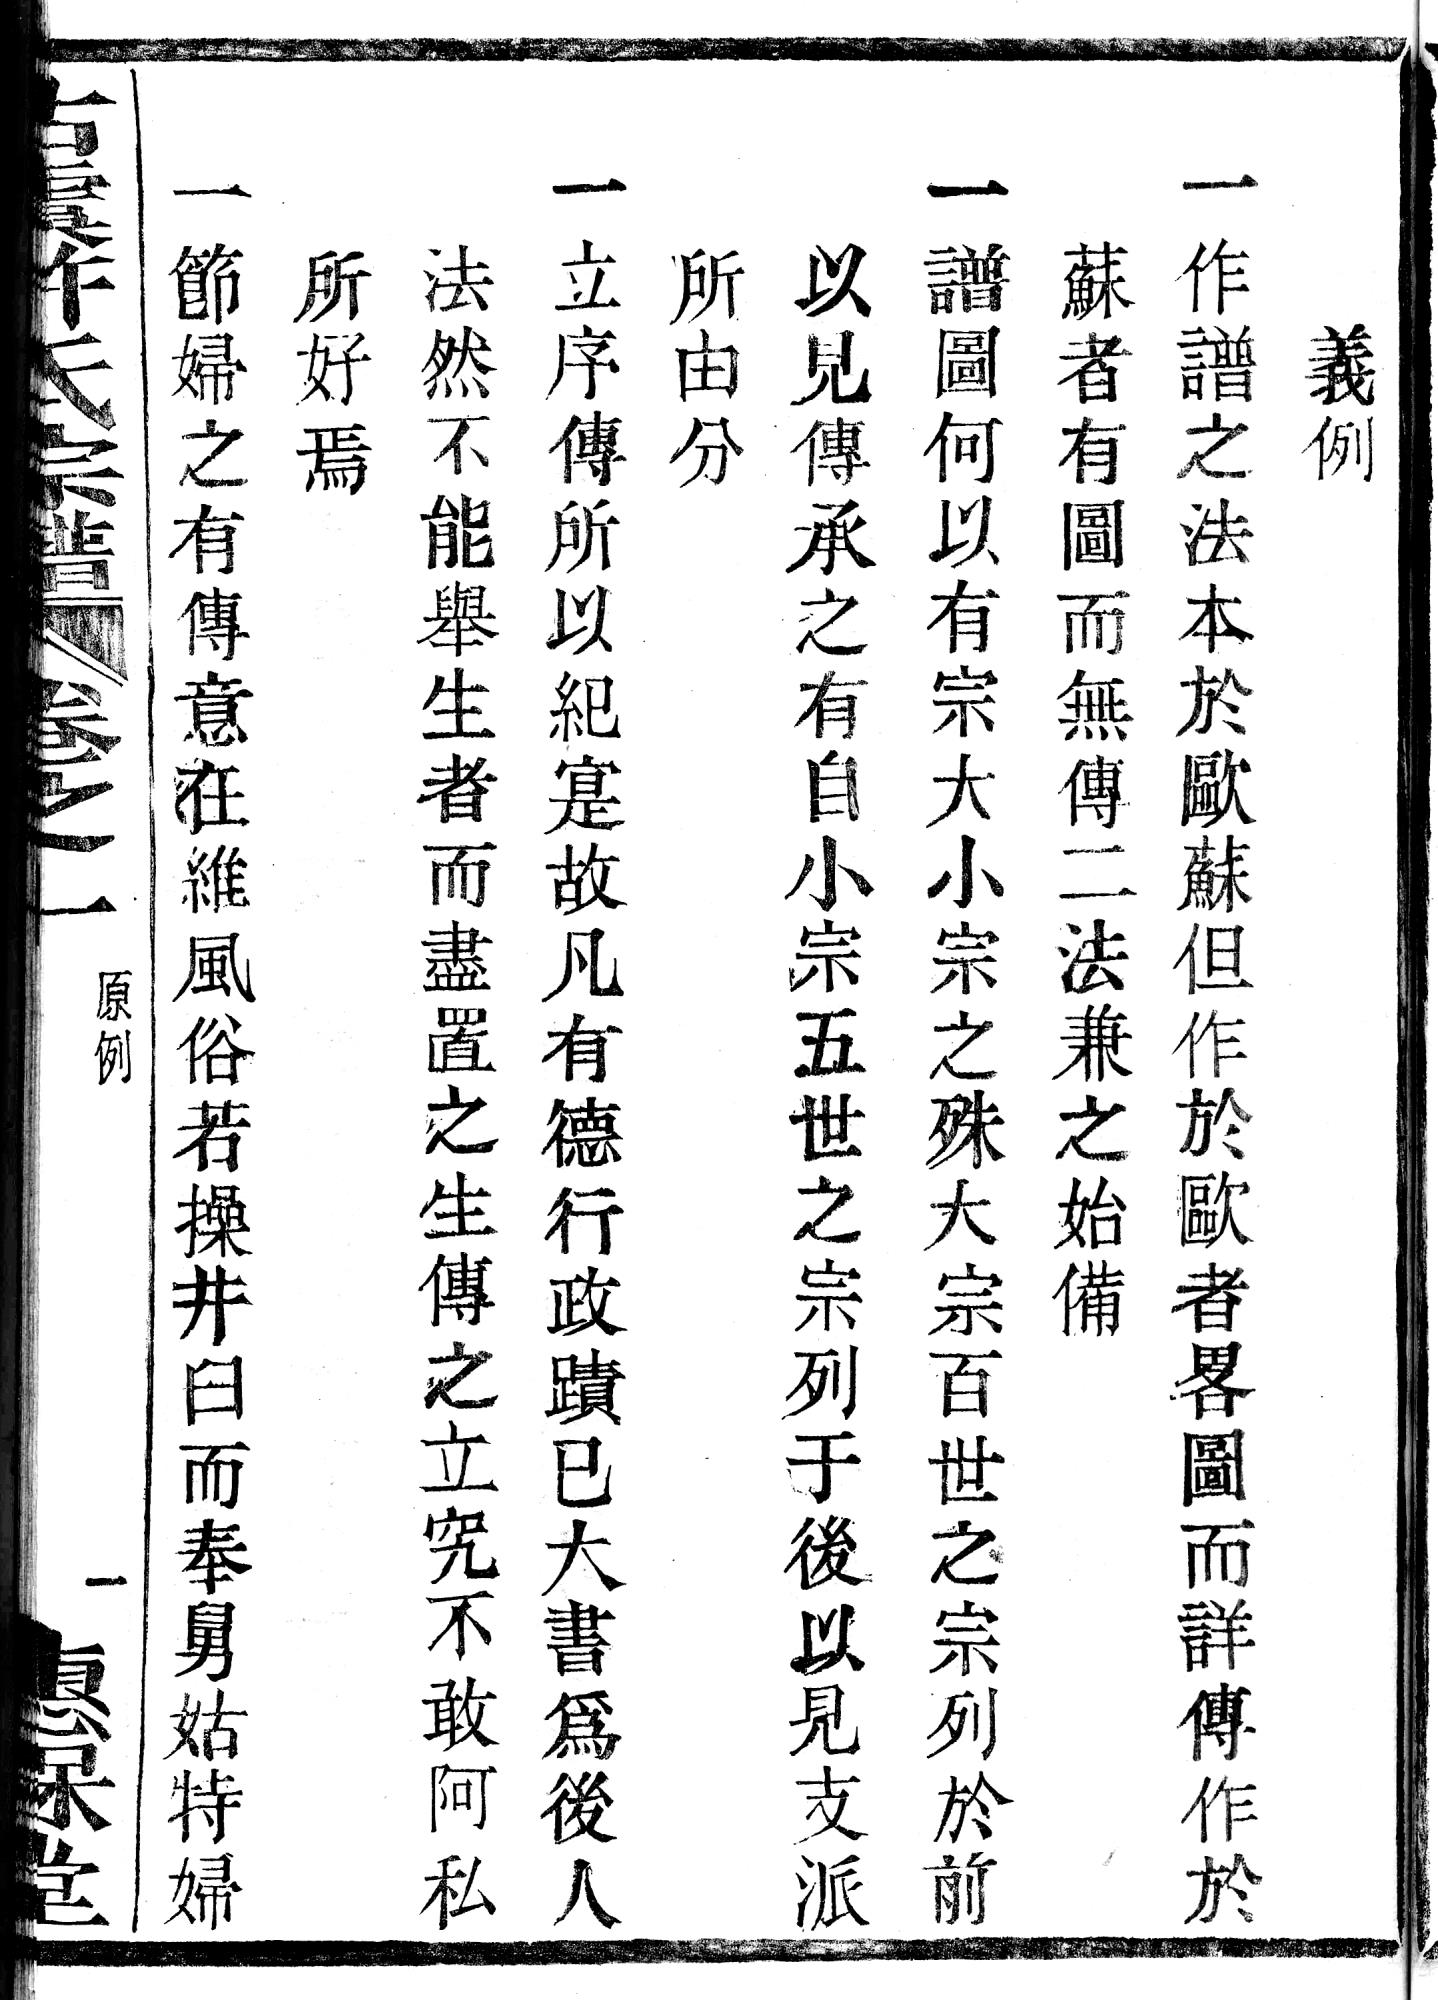 義例
一作譜之法本於歐蘇但作於歐者畧圖而詳傳作於
蘇者有圖而無傳二法兼之始備
一譜圖何以有宗大小宗之殊大宗百世之宗列於前
以見傳承之有自小宗五世之宗列于後以見支派
所由分
一立序傳所以紀寔故凡有德行政蹟已大書爲後人
法然不能舉生者而盡置之生傳之立究不敢阿私
所好焉
一節婦之有傳意在維風俗若操井臼而奉舅姑特婦
氏宗譜 卷之一 原例 一 堂